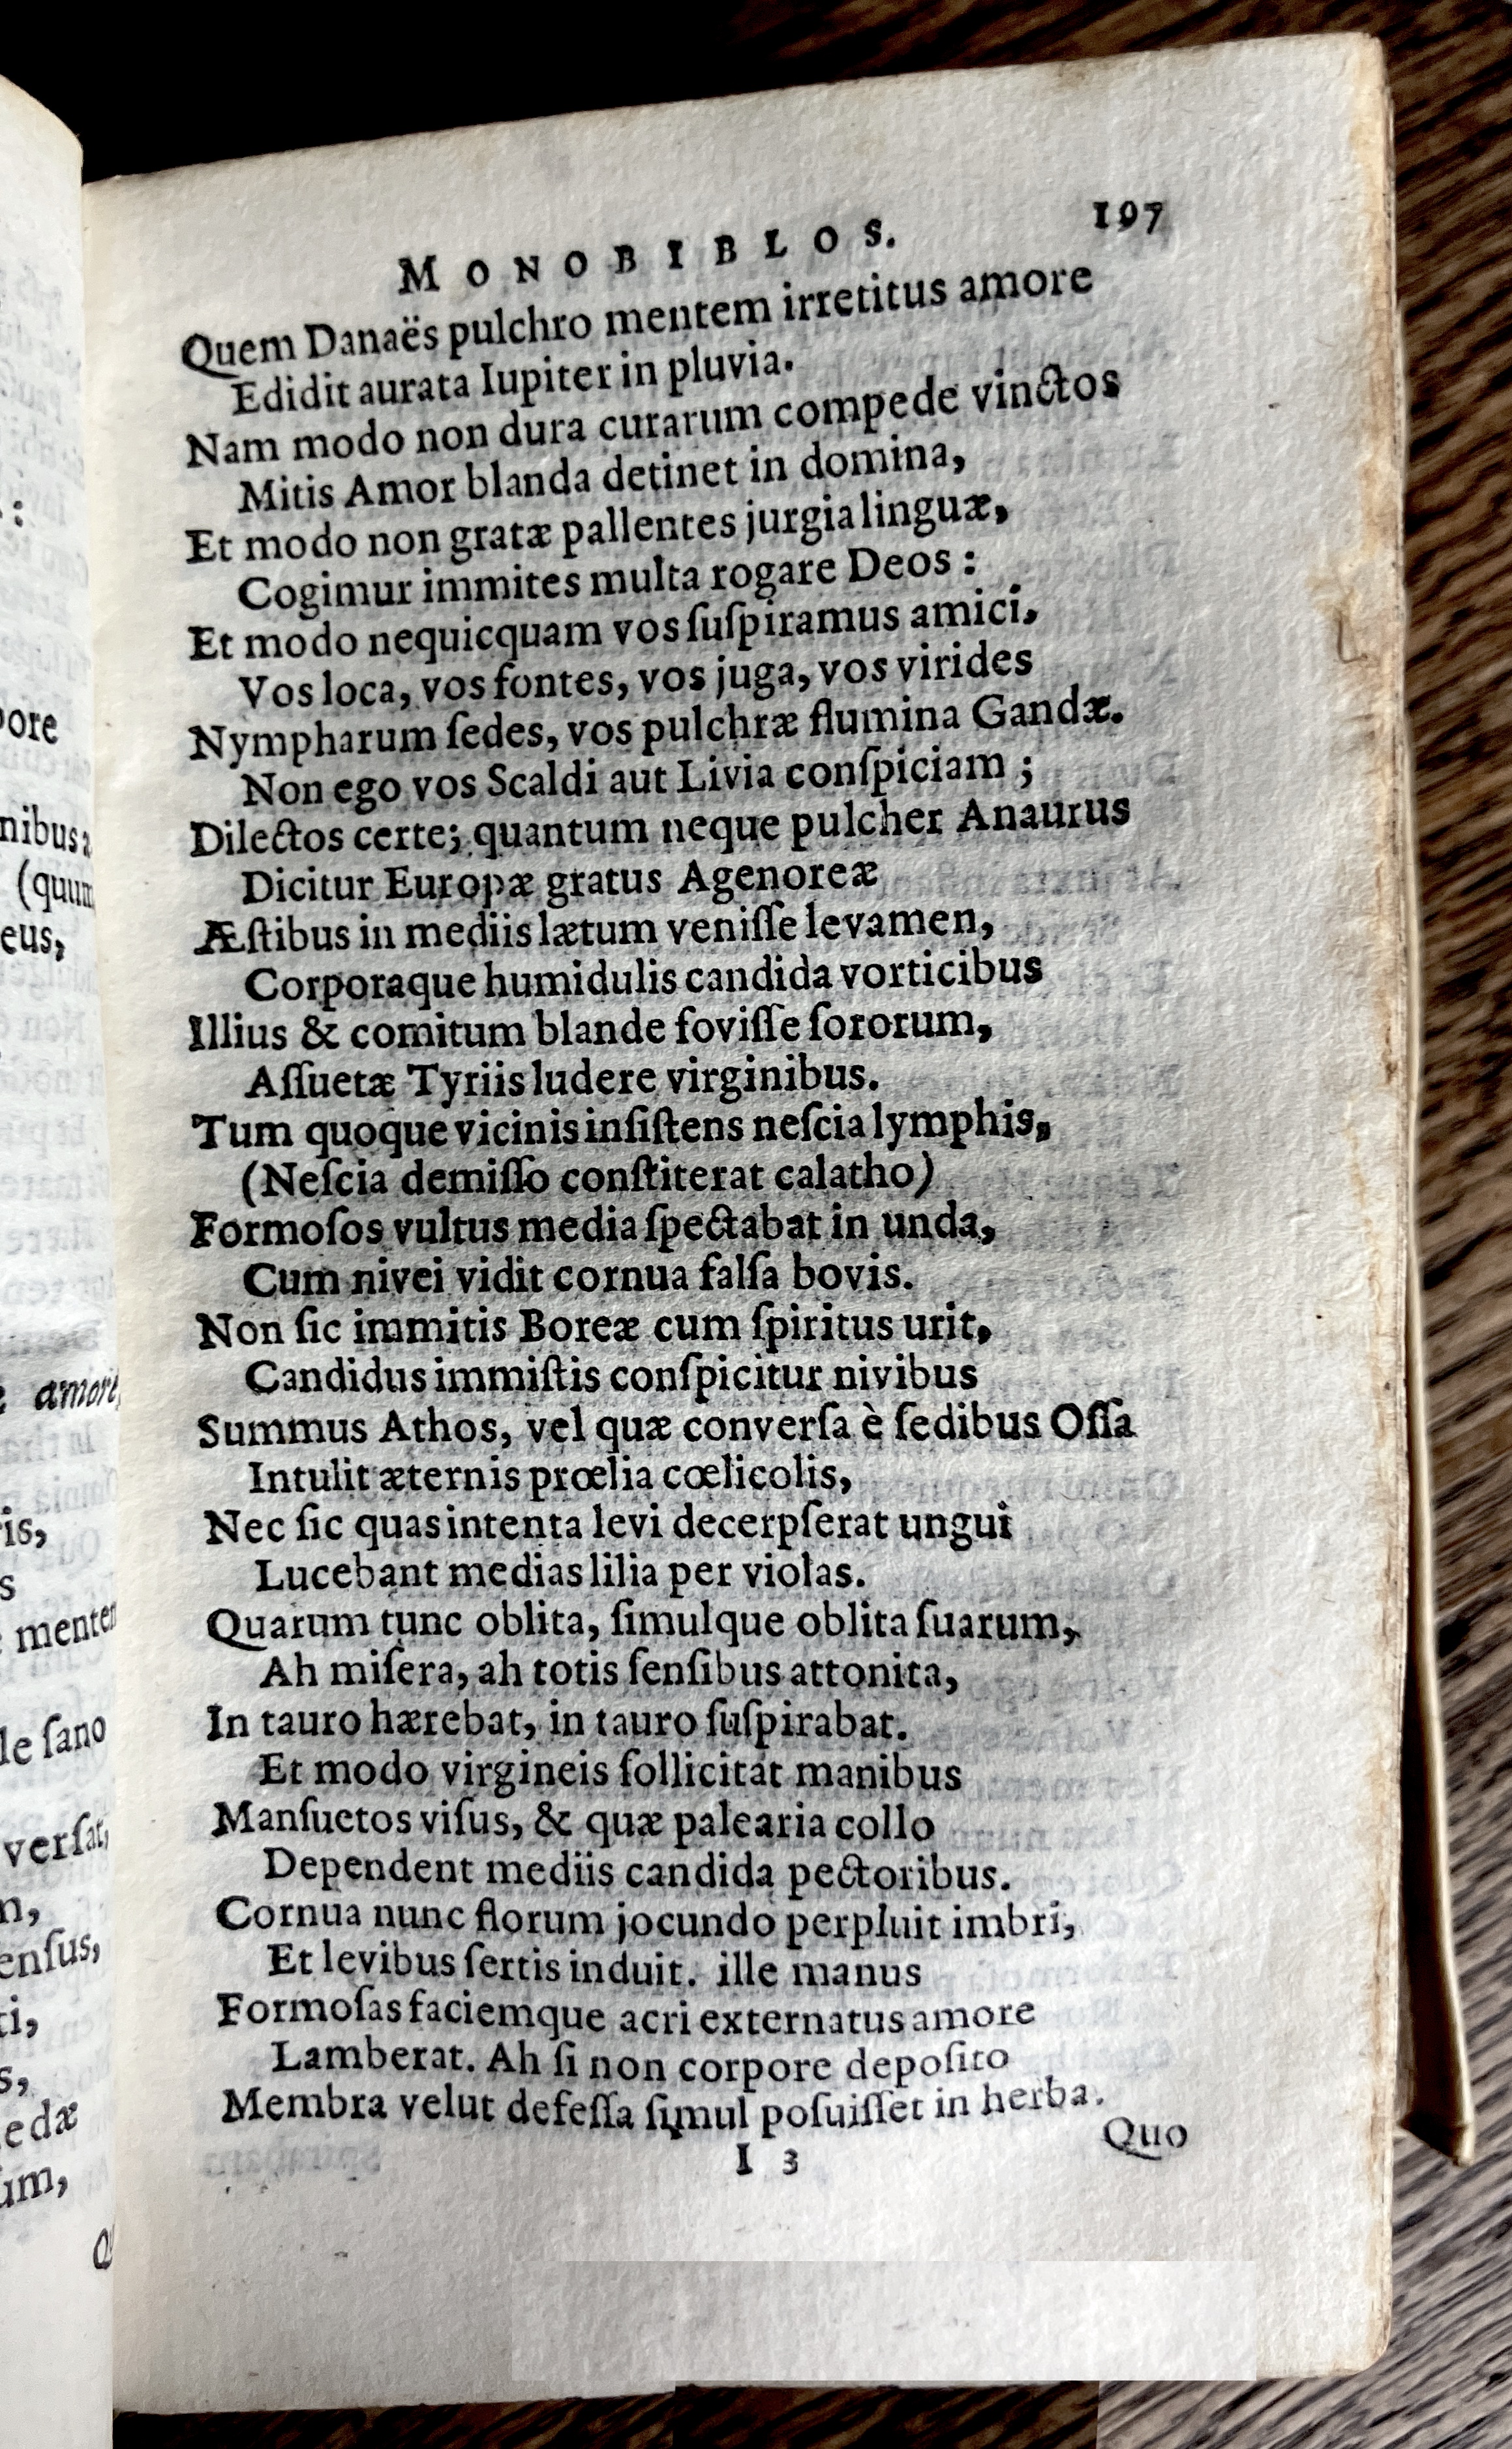 MONOBIBLOS. 197
Quem Danaës pulchro mentem irretitus amore
Edidit aurata Iupiter in pluvia.
Nam modo non dura curarum compede vinctos
Mitis Amor blanda detinet in domina,
Et modo non gratæ pallentes jurgia linguæ,
Cogimur immites multa rogare Deos :
Et modo nequicquam vos ſuſpiramus amici,
Vos loca, vos fontes, vos juga, vos virides
Nympharum ſedes, vos pulchræ flumina Gandæ.
Non ego vos Scaldi aut Livia conſpiciam ;
Dilectos certe; quantum neque pulcher Anaurus
Dicitur Europæ gratus Agenoreæ
Æſtibus in mediis lætum veniſſe levamen,
Corporaque humidulis candida vorticibus
Illius & comitum blande foviſſe ſororum,
Aſſuetæ Tyriis ludere virginibus.
Tum quoque vicinis inſiſtens neſcia lymphis,
(Neſcia demiſſo conſtiterat calatho)
Formoſos vultus media ſpectabat in unda,
Cum nivei vidit cornua falſa bovis.
Non ſic immitis Boreæ cum ſpiritus urit,
Candidus immiſtis conſpicitur nivibus
Summus Athos, vel quæ converſa è ſedibus Oſſa
Intulit æternis prœlia cœlicolis,
Nec ſic quas intenta levi decerpſerat ungui
Lucebant medias lilia per violas.
Quarum tunc oblita, ſimulque oblita ſuarum,
Ah miſera, ah totis ſenſibus attonita,
In tauro hærebat, in tauro ſuſpirabat.
Et modo virgineis ſollicitat manibus
Manſuetos viſus, & quæ palearia collo
Dependent mediis candida pectoribus.
Cornua nunc florum jocundo perpluit imbri,
Et levibus ſertis induit. ille manus
Formoſas faciemque acri externatus amore
Lamberat. Ah ſi non corpore depoſito
Membra velut defeſſa ſimul poſuiſſet in herba.
I 3 Quo